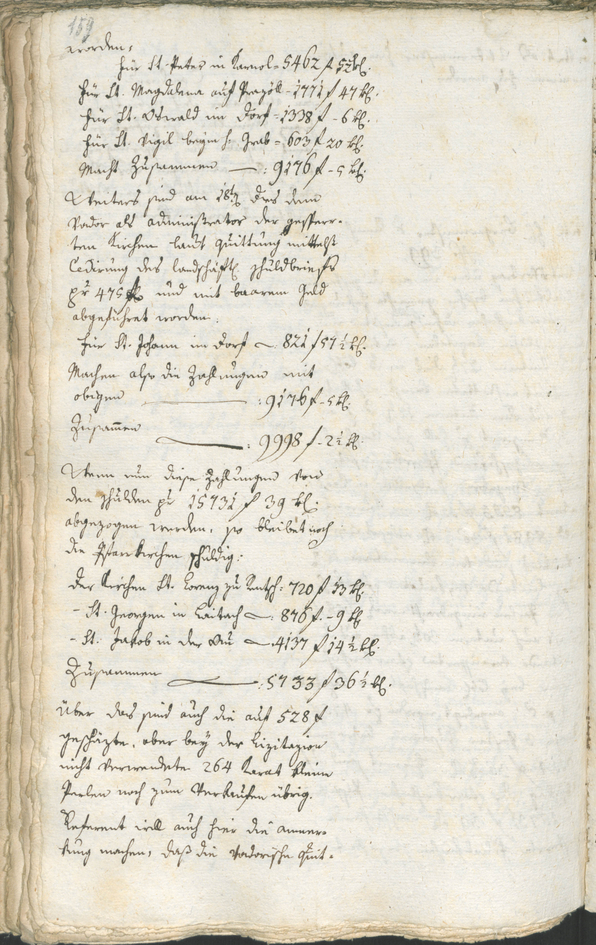 159
worden,
für St. Peter in Karnol = 5462 f 52 kr.
für St. Magdalena auf Prazöll - 1771 f 47 kr.
für St. Oswald im Dorf - 1338 f - 6 kr.
für St. Vigil beym h. Grab = 603 f 20 kr.
Macht Zusammen — : 9176 f - 5 kr.
Weiters sind am 18t
Vador als administrator der gesperr-
ten Kirchen laut Quittung mittelst
Cedirung des landschäftl. Schuldbriefs
pr 475 f und mit baarem Geld
abgeführet worden.
für St. Johann im Dorf — 821 f 57 ½ kr.
Machen also die Zahlungen mit
obigen — : 9176 f - 5 kr.
Zusammen
— : 9998 f - 2 ½ kr.
Wenn nun diese Zahlungen von
den Schulden pr 15731 f 39 kr.
abgezogen werden, so bleibet noch
die Pfarrkirchen schuldig:
Der Kirchen St. Lorenz zu : 720 f 13 kr.
- St. Georgen in — : 876 f. - 9 kr.
- St. Jakob in der Au — 4137 f 14 ½ kr.
Zusammen — : 5733 f 36 ½ kr.
Über das sind auch die auf 528 f
geschäzte, aber bey der Lizitazion
nicht verwendete 264 Karat kleine
Perlen noch zum Verkaufen übrig.
Referent will auch hier die anmer-
kung machen, daß die Vadorische Quit-